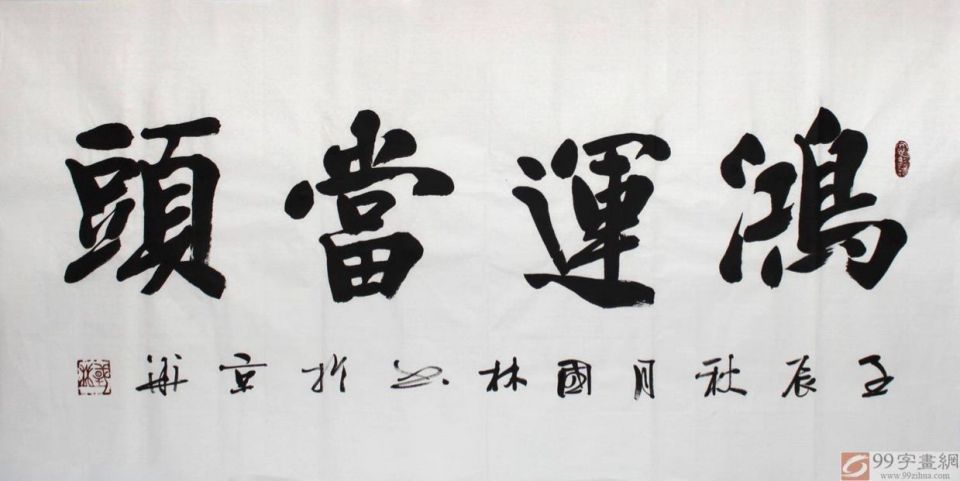 鴻運當頭
壬辰秋月國林書於京華
99字畫網
www.99zihua.com